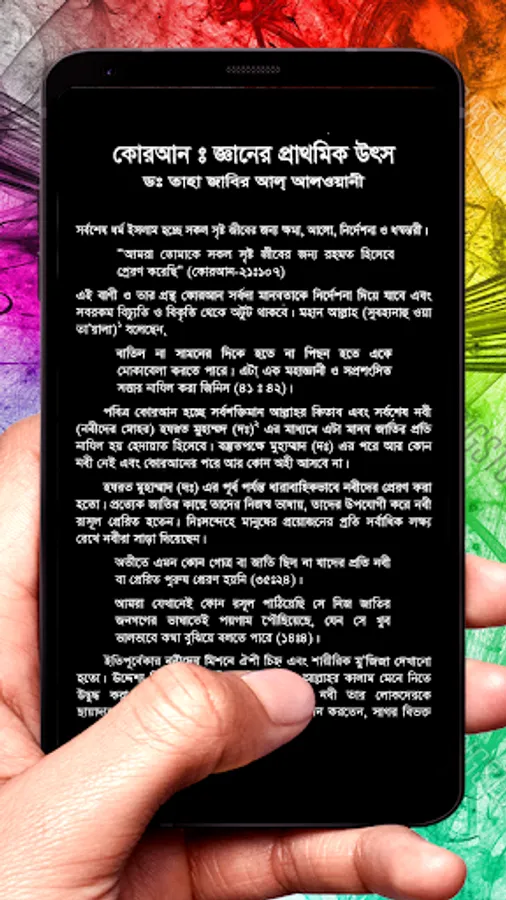 কোরআন ঃ জ্ঞানের প্রাথমিক উৎস
ডঃ তাহা জাবির আল্ আলওয়ানী
সর্বশেষ ধর্ম ইসলাম হচ্ছে সকল সৃষ্ট জীবের জন্য ক্ষমা, আলো, নির্দেশনা ও ধন্বন্তরী।
"আমরা তোমাকে সকল সৃষ্ট জীবের জন্য রহমত হিসেবে
প্রেরণ করেছি" (কোরআন-২১ঃ১০৭)
এই বাণী ও তার গ্রন্থ কোরআন সর্বদা মানবতাকে নির্দেশনা দিয়ে যাবে এবং
সবরকম বিচ্যুতি ও বিকৃতি থেকে অটুট থাকবে। মহান আল্লাহ (সুবহানাহু ওয়া
তা'য়ালা)১ বলেছেন,
বাতিল না সামনের দিকে হতে না পিছন হতে একে
মোকাবেলা করতে পারে। এটা এক মহাজ্ঞানী ও সপ্রশংসিত
সত্তার নাযিল করা জিনিস (৪১ ঃ ৪২)।
পবিত্র কোরআন হচ্ছে সর্বশক্তিমান আল্লাহর কিতাব এবং সর্বশেষ নবী
(নবীদের মোহর) হযরত মুহাম্মদ (দঃ)২ এর মাধ্যমে এটা মানব জাতির প্রতি
নাযিল হয় হেদায়াত হিসেবে। বস্তুতপক্ষে মুহাম্মাদ (দঃ) এর পরে আর কোন
নবী নেই এবং কোরআনের পরে আর কোন অহী আসবে না।
হযরত মুহাম্মাদ (দঃ) এর পূর্ব পর্যন্ত ধারাবাহিকভাবে নবীদের প্রেরণ করা
হতো। প্রত্যেক জাতির কাছে তাদের নিজস্ব ভাষায়, তাদের উপযোগী করে নবী
রাসূল প্রেরিত হতেন। নিঃসন্দেহে মানুষের প্রয়োজনের প্রতি সর্বাধিক লক্ষ্য
রেখে নবীরা সাড়া দিয়েছেন।
অতীতে এমন কোন গোত্র বা জাতি ছিল না যাদের প্রতি নবী
বা প্রেরিত পুরুষ প্রেরণ হয়নি (৩৫ঃ২৪)।
আমরা যেখানেই কোন রসূল পাঠিয়েছি সে নিজ জাতির
জনগণের ভাষাতেই পয়গাম পৌছিয়েছে, যেন সে খুব
ভালভাবে কথা বুঝিয়ে বলতে পারে (১৪ঃ৪)।
ইতিপূর্বেকার নবীদের মিশনে ঐশী চিহ্ন এবং শারীরিক মু'জিজা দেখানো
হতো। উদ্দেশ্য আল্লাহর কালাম মেনে নিতে
উদ্বুদ্ধ করা নবী তার লোকদেরকে
করতেন, সাগর বিভক্ত